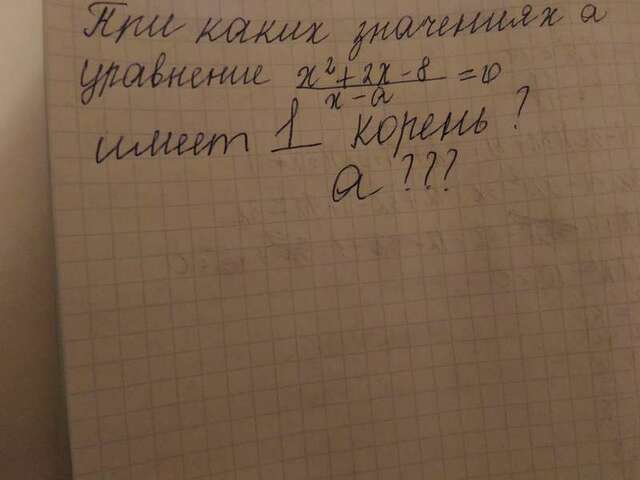 При каких значениях a
уравнение (x²+2x-8)/(x-a) =0
имеет 1 корень?
a???